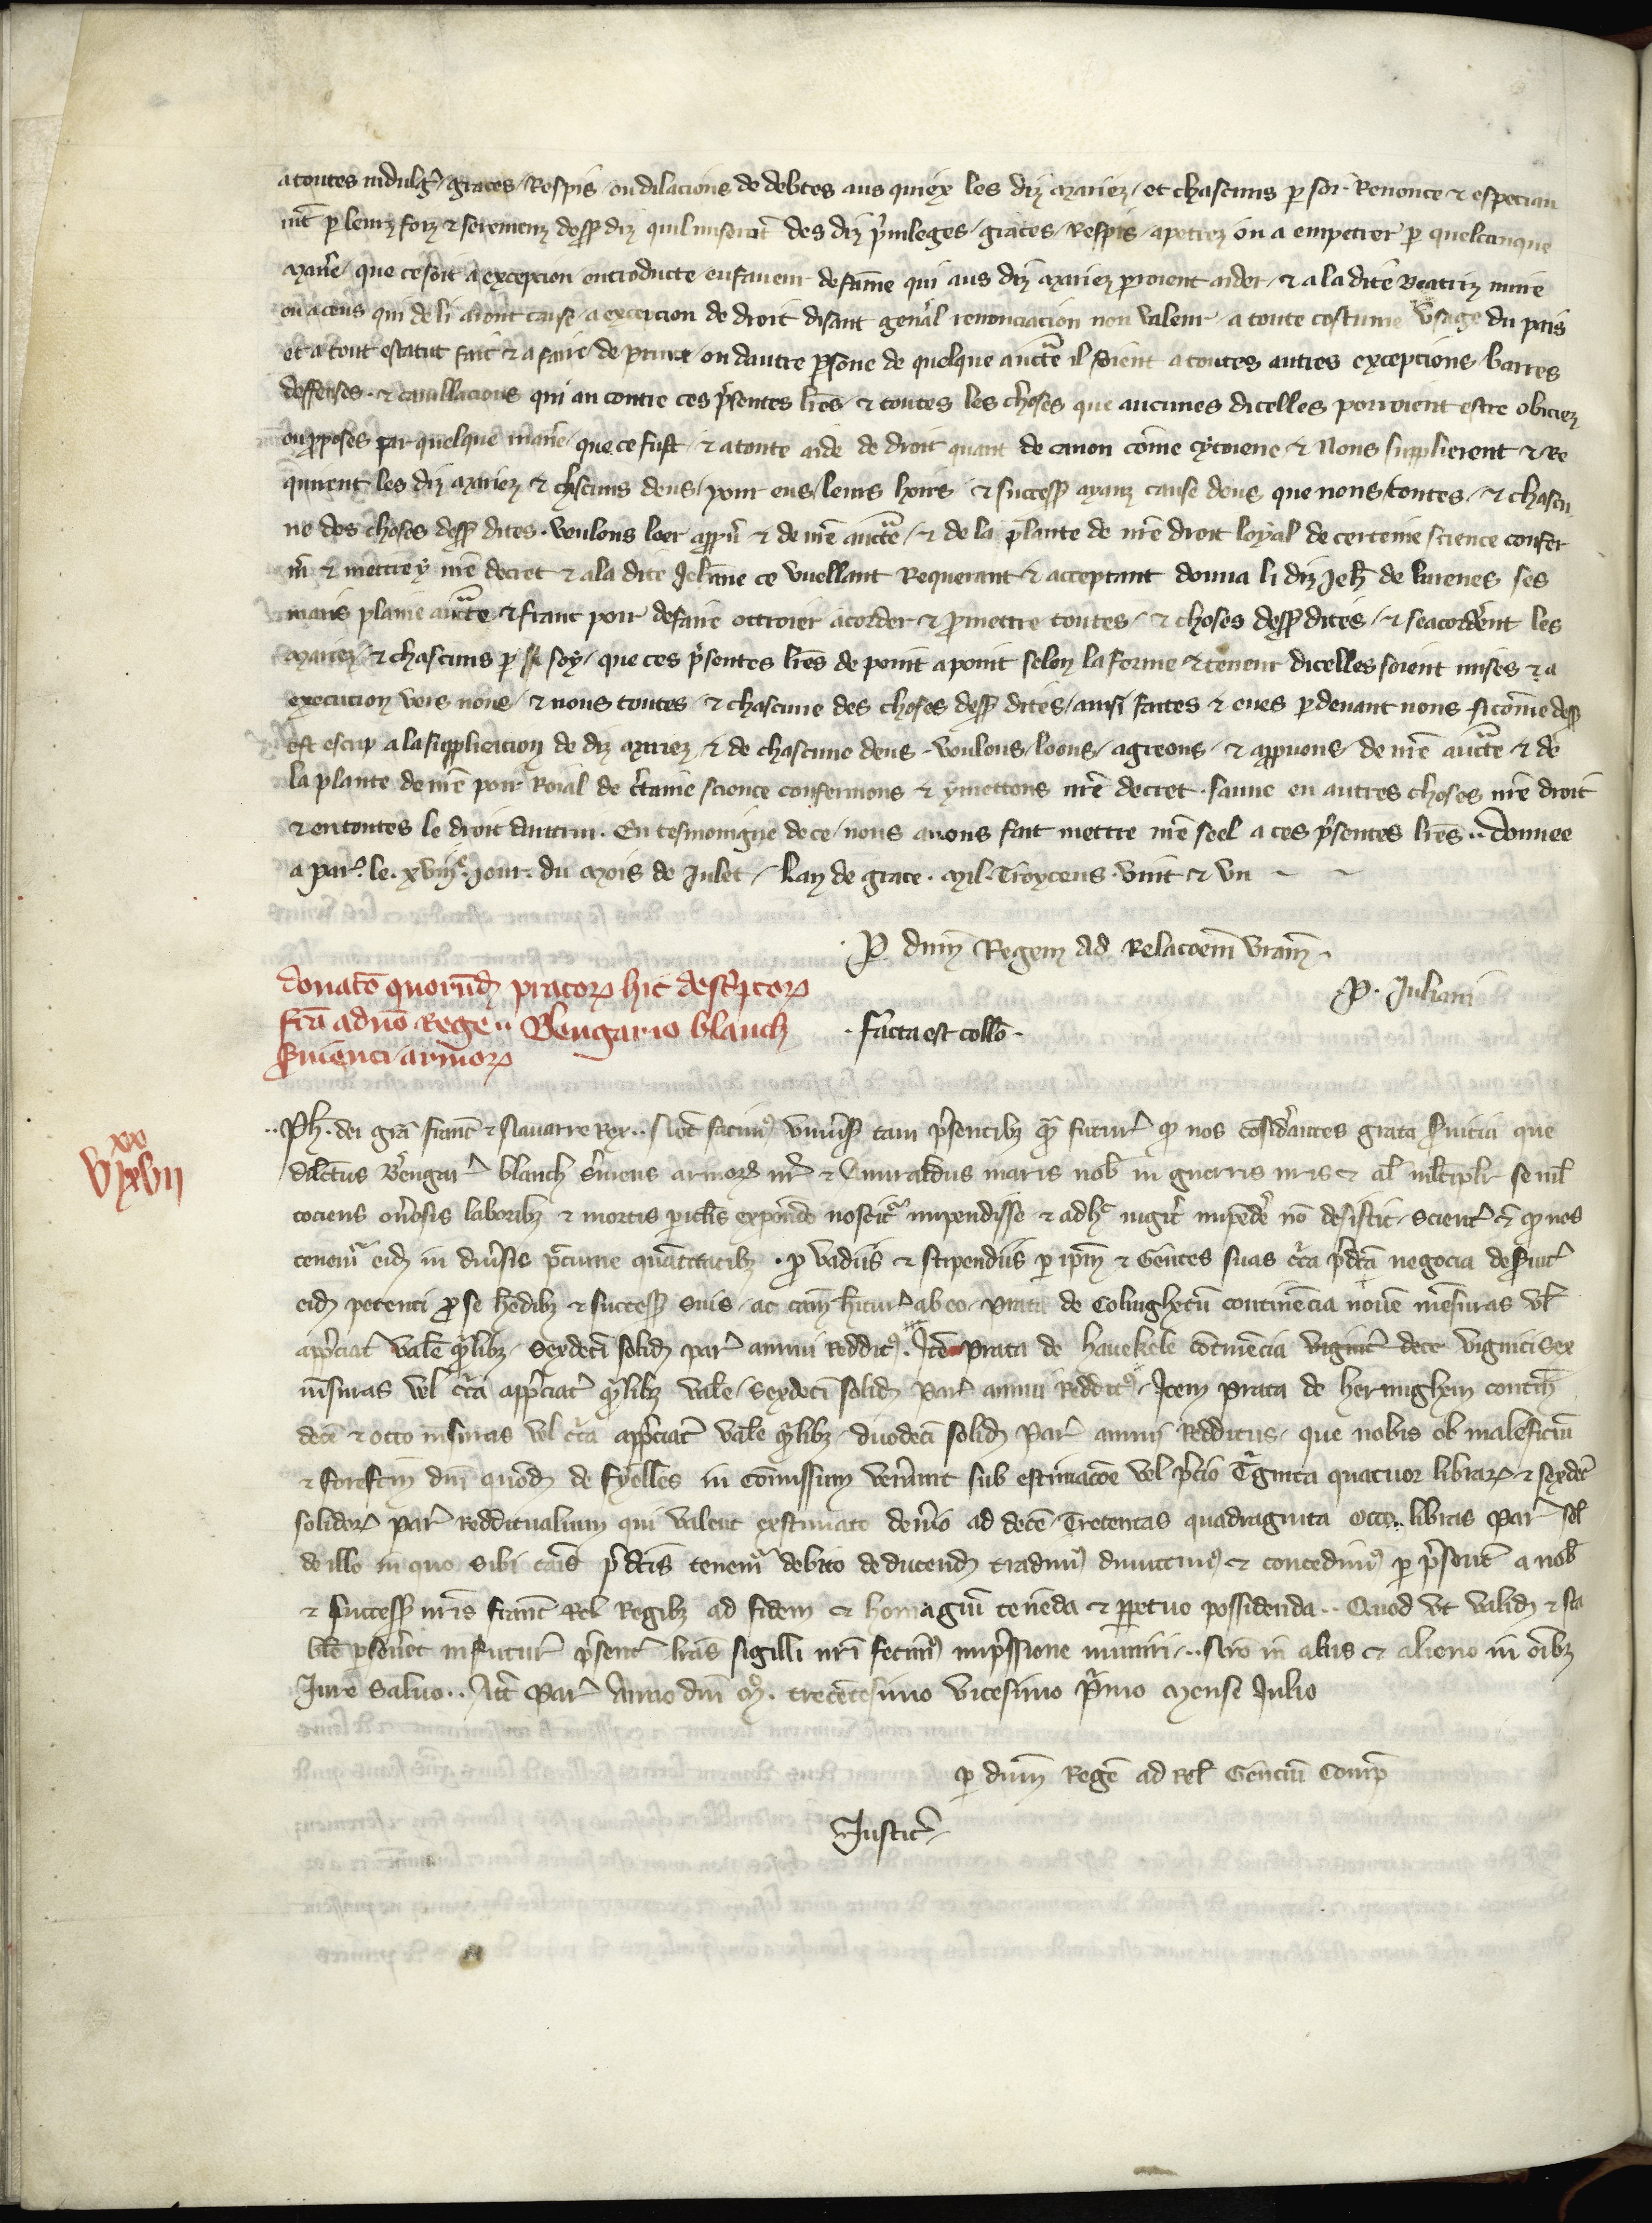 a toutes indulg̃ / graces / Respis / ou dilacions de debtes aus quiex les diz mariez / et chascuns p̲ soi Renonce ⁊ especiau
mẽt p̲ leurs foiz ⁊ seremenz dess̃ diz quil nuseront des diz p̃uileges / graces / Respis / apetrez ou a empetrer p̲ quelcunque
mañe / que ce soit a excepcion / introducte / en faueur de fãme qui aus diz mariez p̲roient aider / ⁊ a la dite Beatriz nuire
ou a ceus qui de li aront cause / a excepcion de droit disant geñal renonciacion non valeur / a toute costume Vsage du pais
et a tout estatut fait ⁊ a faire de prince / ou dautre p̲sone de quelque auctᵃte il soient a toutes autres excepcions barres
deffenses ⁊ cauillacions qui au contre ces p̃sentes lr̃es ⁊ toutes les choses que aucunes dicelles porroient estre obiciez
ou p̲poses par quelque mañe / que ce fust / ⁊ a toute aide de droit quant de canon cõme cytoiene ⁊ Nous supplierent ⁊ Re
quirent les diz mariez ⁊ ch̃scuns deus / pour eus / leurs hoirs ⁊ success̃ aianz cause deus que nous toutes / ⁊ chascu
ne des choses dess̃ dites / voulons loer app̲ũ ⁊ de nr̃e auctᵃte / ⁊ de la plante de nr̃e droit loyal de certeine science confer
m̃ ⁊ mettre y nr̃e decret ⁊ a la dite Jehãne ce vuellant Requerant ⁊ acceptant donna li diz Jeh̃ de Varenes ses
maris plaine auctᵃte ⁊ franc poir de faire ottroier acorder ⁊ p̲mettre toutes / ⁊ choses dess̃ dites / ⁊ se acordẽnt les
mariez / ⁊ chascuns p̲ soy / que ces p̃sentes lr̃es de point a point selon la forme ⁊ teneur dicelles soient mises ⁊ a
execucion vers nous / ⁊ nous toutes / ⁊ chascune des choses dess̃ dites / ainsi faites ⁊ eues p̲deuant nous sicõme dess̃
est escrip a la supplicacion de diz mariez ⁊ de chascune deus / voulons / loons / agreons / ⁊ app̲uons / de nr̃e auctᵃte ⁊ de
la plante de nr̃e poir Roial de c̃taine science confermons ⁊ y mettons nr̃e decret / sauue en autres choses nr̃e droit
⁊ en toutes le droit dautrui. En tesmoingne de ce / nous auons fait mettre nr̃e seel a ces p̃sentes lr̃es .. donnee
a Par̃ le xviijᵉ jour du mois de Julet / Lan de grace mil Troyzens vint ⁊ vn
P̲ dñm Regem ad Relacoẽm vr̃am
P. Juliani
donacõ quorũdʒ pratorꝝ hic desc̃ptorꝝ
fc̃a a dño Rege .. B̃engario blanch
s̃uienti armorꝝ
. facta est coll̃o .
xx
V xvii
.. Ph̃ dei gr̃a franc̃ ⁊ Nauarre Rex .. Not̃ facimꝰ vniũs̃ tam p̃sentibʒ qᵃ̃ futur̃ qꝫ nos cõsid̃antes grata s̃uicia que
dilc̃tus B̃engar̃ blanch s̃uiens armorꝝ nr̃ ⁊ Amiraldus maris nob̃ in guerris nr̃is ⁊ al̃ ml̃tiplr̃ se mil̃
tociens oñosis laboribʒ ⁊ mortis pic̃lis exp̲onẽdo noscitᵃ impendisse ⁊ adhᶜ iugit̃ impẽde nõ desistit / scient̃ ⁊ qꝫ nos
tenemᵃ eidʒ in diũsis p̃cunie quãtitatibʒ . p̲ vadiis ⁊ stipendiis p̲ ip̃m ⁊ Gentes suas c̃ca p̃dc̃a negocia des̃uit̃
eidʒ petenti p̲ se h̃edibʒ ⁊ success̃ suis / ac cãm h̃itur̃ ab eo / Prata de Colinghetũ continẽcia nouẽ mẽsuras vl̃
ap̃ciat̃ vale qᵃlibʒ / sexdeci solidʒ par̃ annui redditꝰ . Itẽ Prata de Hauekele cõtinẽcia viginti dece viginti sex
m̃suras vel c̃ca app̃ciat̃ qᵃlibʒ vale / sexdeci solidʒ Par̃ annui Redditꝰ / Item Prata de Herninghem contin̄
decẽ ⁊ octo m̃suras vl̃ c̃ca app̃ciat̃ vale qᵃlibʒ / duodeci solidʒ Par̃ annui Redditus / que nobis ob maleficiũ
⁊ forefcm̃ dñi quõdʒ de fyelles in cõmissum veñunt sub estimacõe vel p̃cio Tᵃginta quatuor librarꝝ ⁊ sexdec̃
solidorꝝ par̃ reddituaũm qui valent extimate deñio ad decẽ Trecentas quadraginta octo .. libras Par̃ sol̃
de illo in quo sibi c̃aĩs p̃dc̃is tenemᵃ debito deducendʒ tradimꝰ dimittimꝰ ⁊ concedimꝰ p̲ p̃sent̃ a nob̃
⁊ success̃ nr̃is franc̃ Rel̃ Regibʒ ad fidem ⁊ homagiũ teneda ⁊ p̲petuo possidenda .. Quod vt validʒ ⁊ sta
bile p̲seũet in futur̃ p̃sent̃ lr̃as sigilli nr̃i fecimꝰ imp̃ssione muniri .. Nr̃o in aliis ⁊ alieno in oĩbʒ
Jure saluo .. Act̃ Par̃ Anno dñi Mᵒ. trecentesimo vicesimo p̃mo mense Julio
p̲ dñm Regẽ ad Rel̃ Genciũ Comp̃
Justic̃